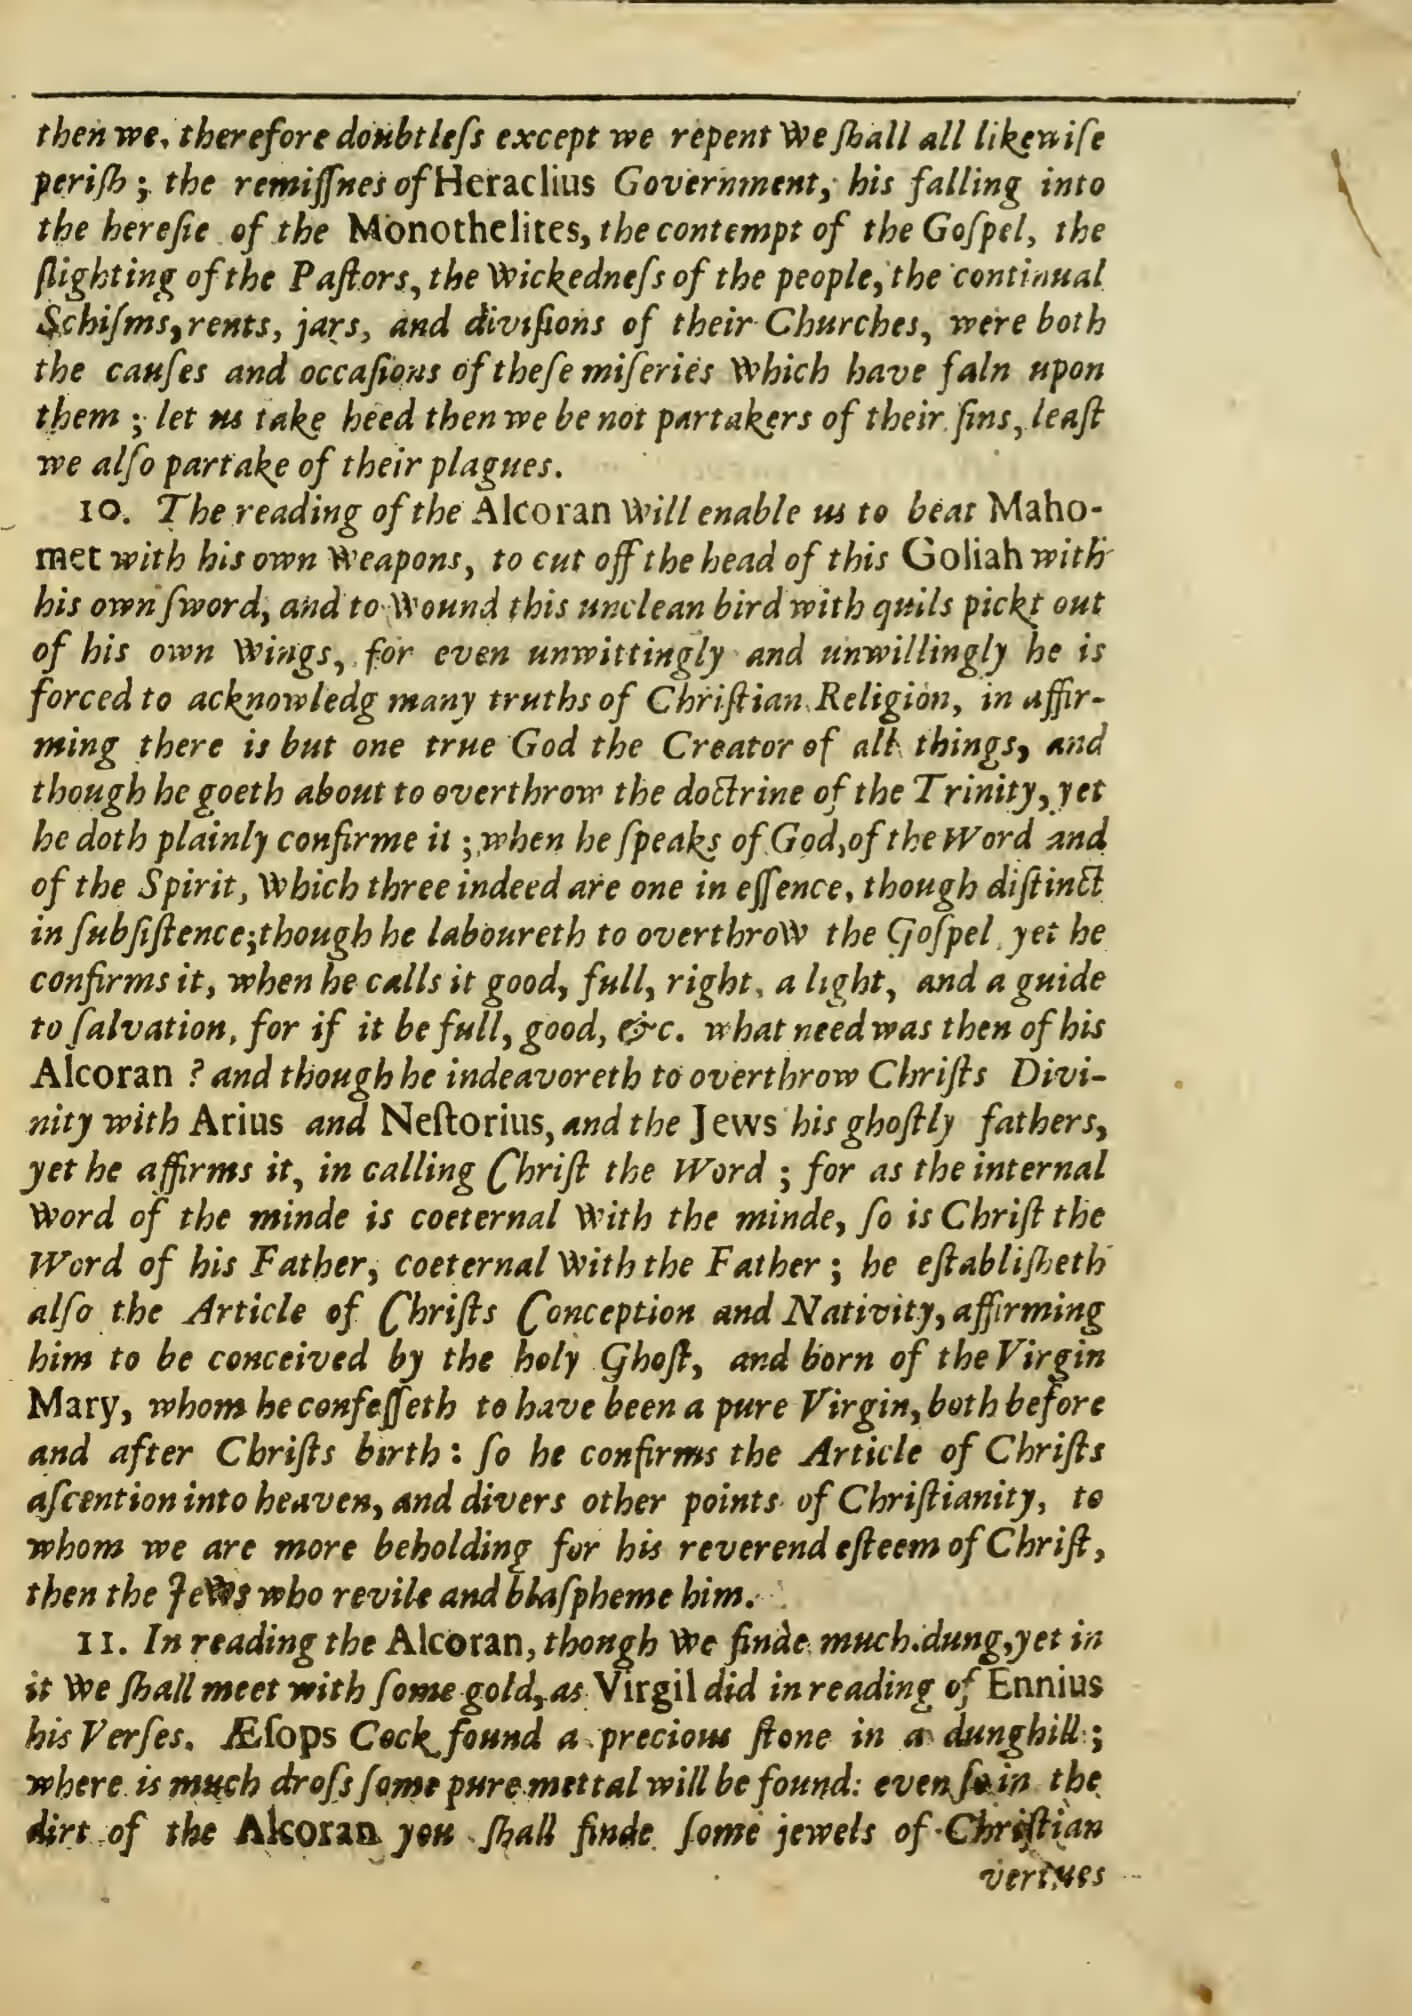 then we, therefore doubtleſs except we repent we ſhall all likewiſe
periſh; the remiſſnes of Heraclius Government, his falling into
the hereſie of the Monothelites, the contempt of the Goſpel, the
ſlighting of the Paſtors, the wickedneſs of the people, the continual
Schiſms, rents, jars, and diviſions of their Churches, were both
the cauſes and occaſions of theſe miſeries which have faln upon
them; let us take heed then we be not partakers of their ſins, leaſt
we alſo partake of their plagues.
10. The reading of the Alcoran will enable us to beat Maho-
met with his own weapons, to cut off the head of this Goliah with
his own ſword, and to wound this unclean bird with quils pickt out
of his own wings, for even unwittingly and unwillingly he is
forced to acknowledg many truths of Chriſtian Religion, in affir-
ming there is but one true God the Creator of all things, and
though he goeth about to overthrow the doctrine of the Trinity, yet
he doth plainly confirme it; when he ſpeaks of God, of the Word and
of the Spirit, which three indeed are one in eſſence, though diſtinct
in ſubſiſtence; though he laboureth to overthrow the Goſpel yet he
confirms it, when he calls it good, full, right, a light, and a guide
to ſalvation, for if it be full, good, &c. what need was then of his
Alcoran? and though he indeavoreth to overthrow Chriſts Divi-
nity with Arius and Neſtorius, and the Jews his ghoſtly fathers,
yet he affirms it, in calling Chriſt the Word; for as the internal
word of the minde is coeternal with the minde, ſo is Chriſt the
Word of his Father, coeternal with the Father; he eſtabliſheth
alſo the Article of Chriſts Conception and Nativity, affirming
him to be conceived by the holy Ghoſt, and born of the Virgin
Mary, whom he confeſſeth to have been a pure Virgin, both before
and after Chriſts birth: ſo he confirms the Article of Chriſts
aſcention into heaven, and divers other points of Chriſtianity, to
whom we are more beholding for his reverend eſteem of Chriſt,
then the Jews who revile and blaſpheme him.
11. In reading the Alcoran, though we finde much dung, yet in
it we ſhall meet with ſome gold, as Virgil did in reading of Ennius
his Verſes. Æſops Cock found a precious ſtone in a dunghill;
where is much droſs ſome pure mettal will be found: even ſo in the
dirt of the Alcoran you ſhall finde ſome jewels of Chriſtian
vertues